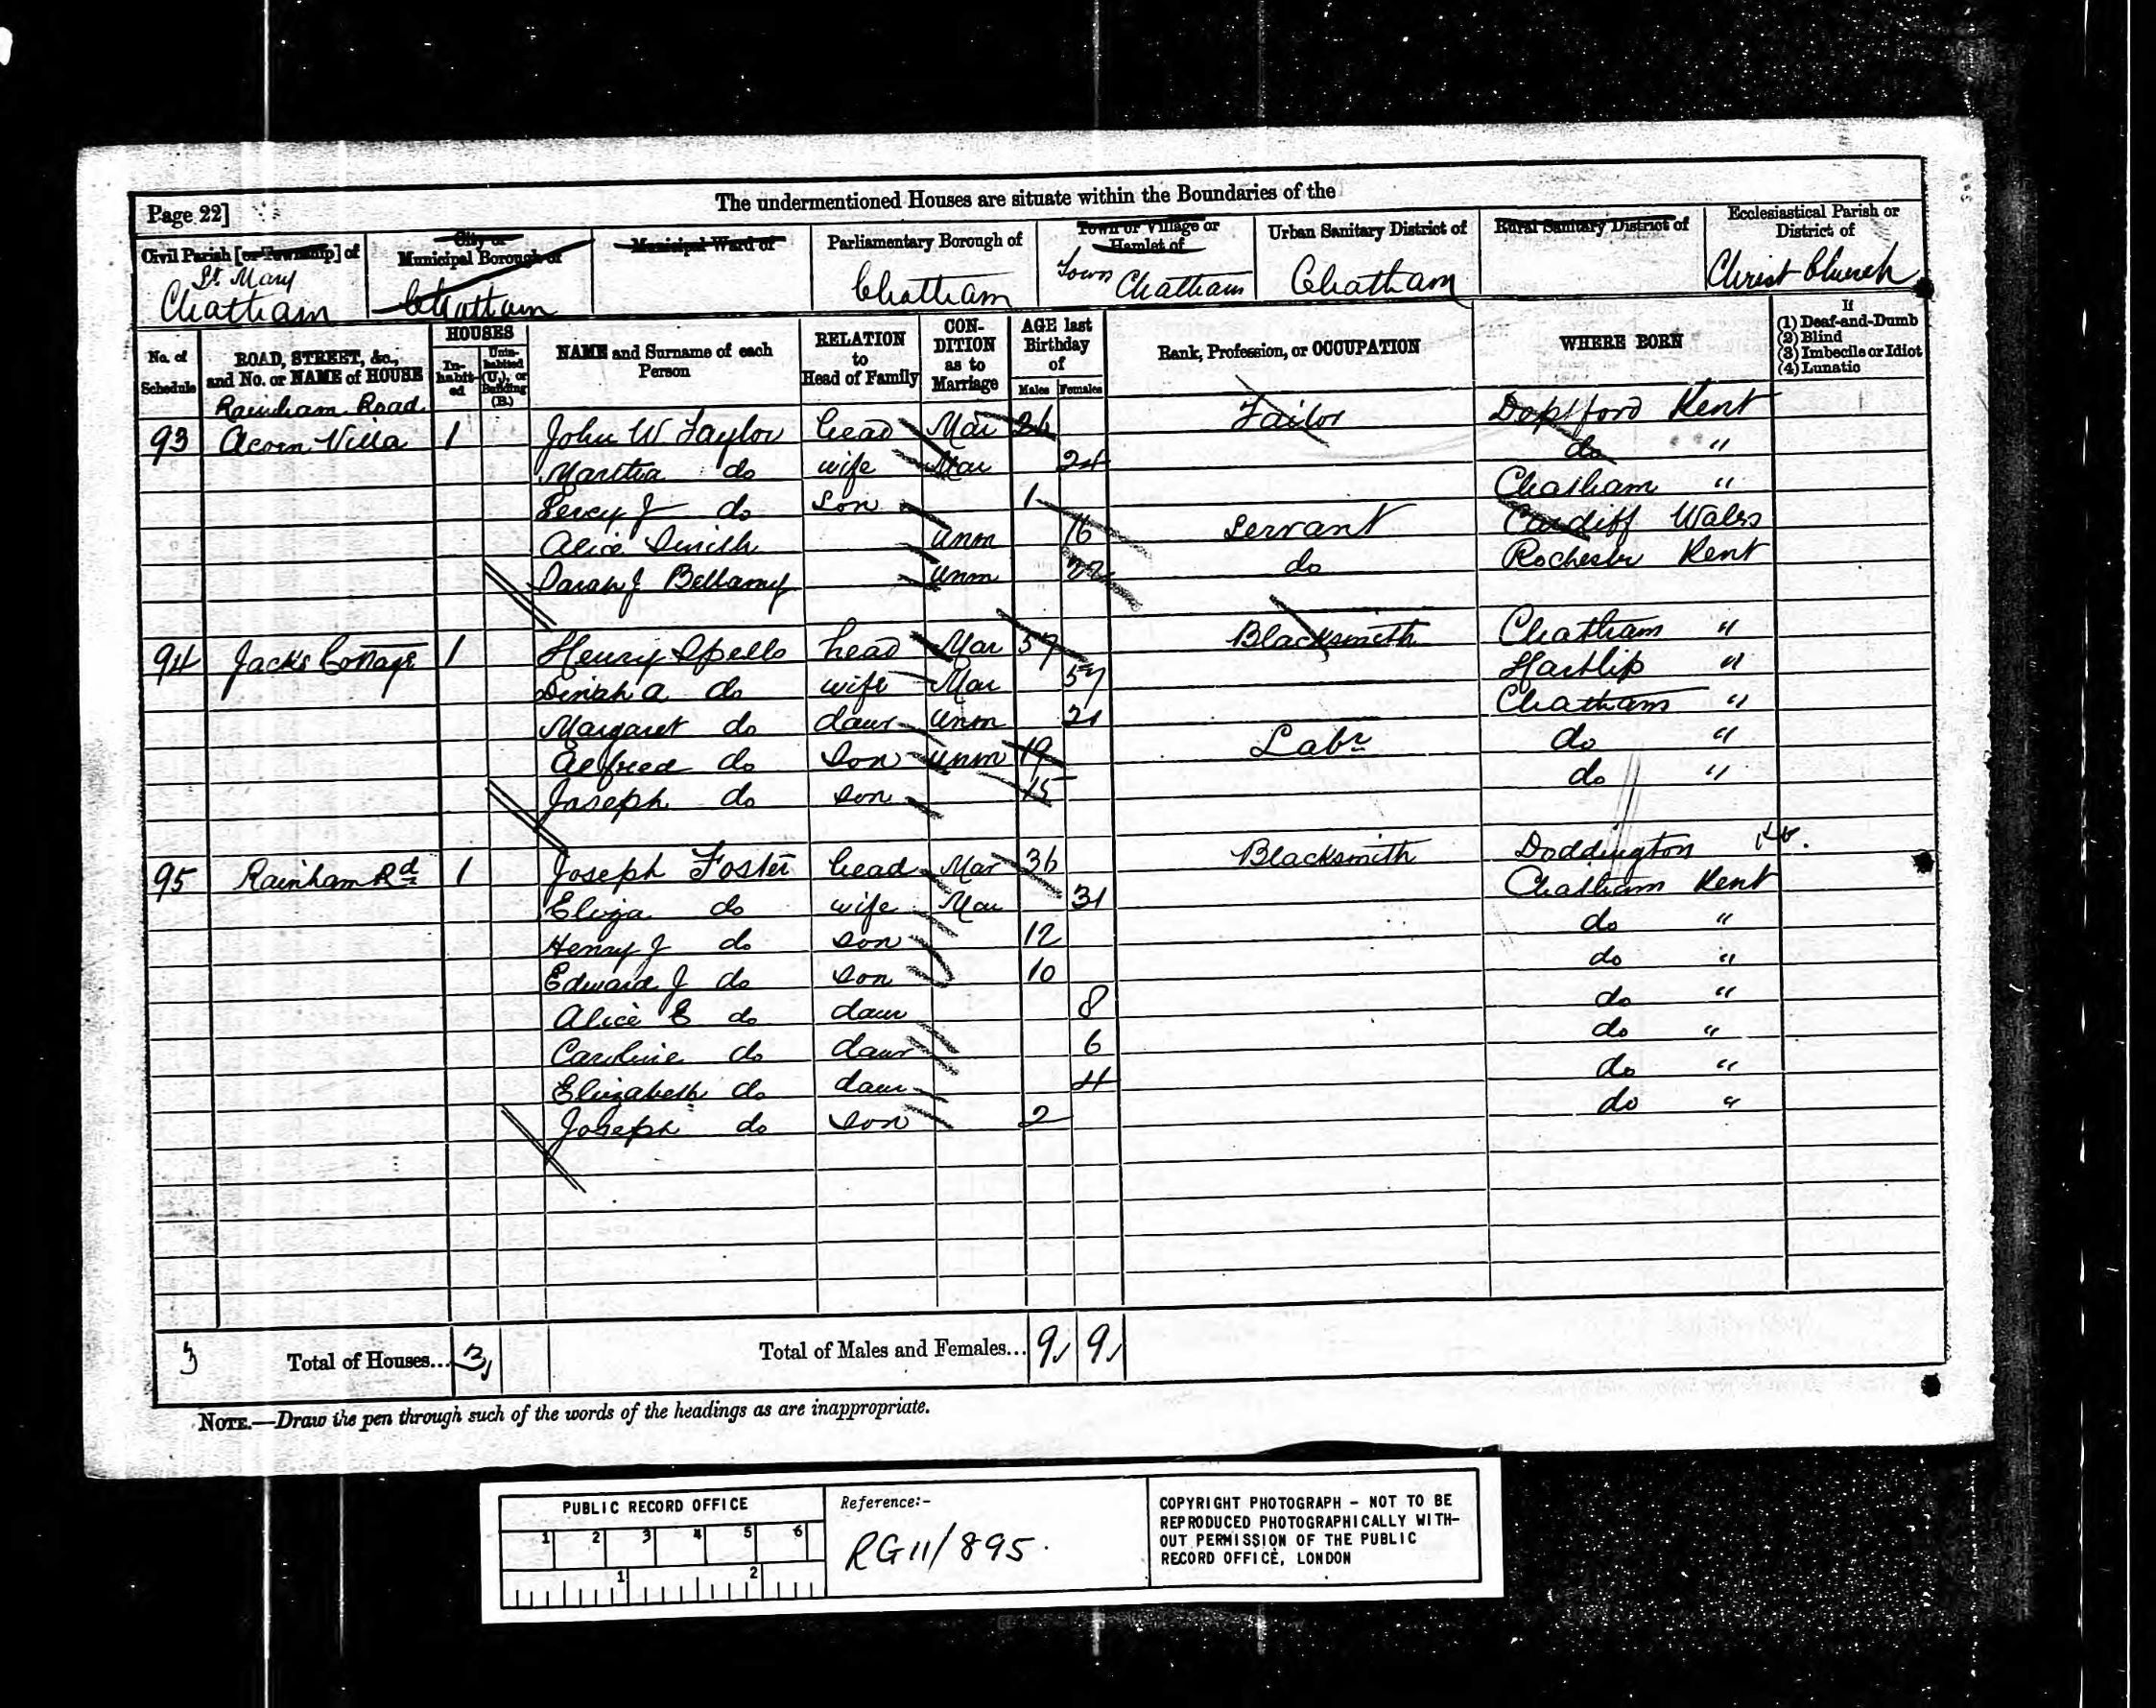 The undermentioned Houses are situate within the Boundaries of the
Page 22]
Civil Parish [or Township] of
St. Mary
Chatham
City or
Municipal Borough of
Chatham
Municipal Ward of
Parliamentary Borough of
Chatham
Town or Village or
Hamlet of
Town Chatham
Urban Sanitary District of
Chatham
Rural Sanitary District of
Ecclesiastical Parish or
District of
Christ Church
No. of
Schedule
ROAD, STREET, &c.,
and No. or NAME of HOUSE
HOUSES
In-
habit-
ed
Unin-
habited
(U.), or
Building
(B.)
NAME and Surname of each
Person
RELATION
to
Head of Family
CON-
DITION
as to
Marriage
AGE last
Birthday
of
Males Females
Rank, Profession, or OCCUPATION
WHERE BORN
If
(1) Deaf-and-Dumb
(2) Blind
(3) Imbecile or Idiot
(4) Lunatic
Rainham Road
93 Acorn Villa 1 John W Taylor head Mar 26 Tailor Deptford Kent
Martha do wife Mar 24 do "
Percy J do Son 1 Chatham "
Alice Smith Unm 16 Servant Cardiff Wales
Sarah J Bellamy Unm 22 do Rochester Kent
94 Jacks Cottage 1 Henry Spells head Mar 57 Blacksmith Chatham "
Dinah A do wife Mar 57 Hartlip "
Margaret do daur Unm 21 Chatham "
Alfred do Son Unm 19 Labr do "
Joseph do son 15 do "
95 Rainham Rd 1 Joseph Foster head Mar 36 Blacksmith Doddington
Eliza do wife Mar 31 Chatham Kent
Henry J do son 12 do "
Edward J do son 10 do "
Alice E do daur 8 do "
Caroline do daur 6 do "
Elizabeth do daur 4 do "
Joseph do son 2 do "
3 Total of Houses... 3 Total of Males and Females... 9 9
NOTE.—Draw the pen through such of the words of the headings as are inappropriate.
PUBLIC RECORD OFFICE
1 2 3 4 5 6
1 2
Reference:-
RG11/895.
COPYRIGHT PHOTOGRAPH - NOT TO BE
REPRODUCED PHOTOGRAPHICALLY WITH-
OUT PERMISSION OF THE PUBLIC
RECORD OFFICE, LONDON